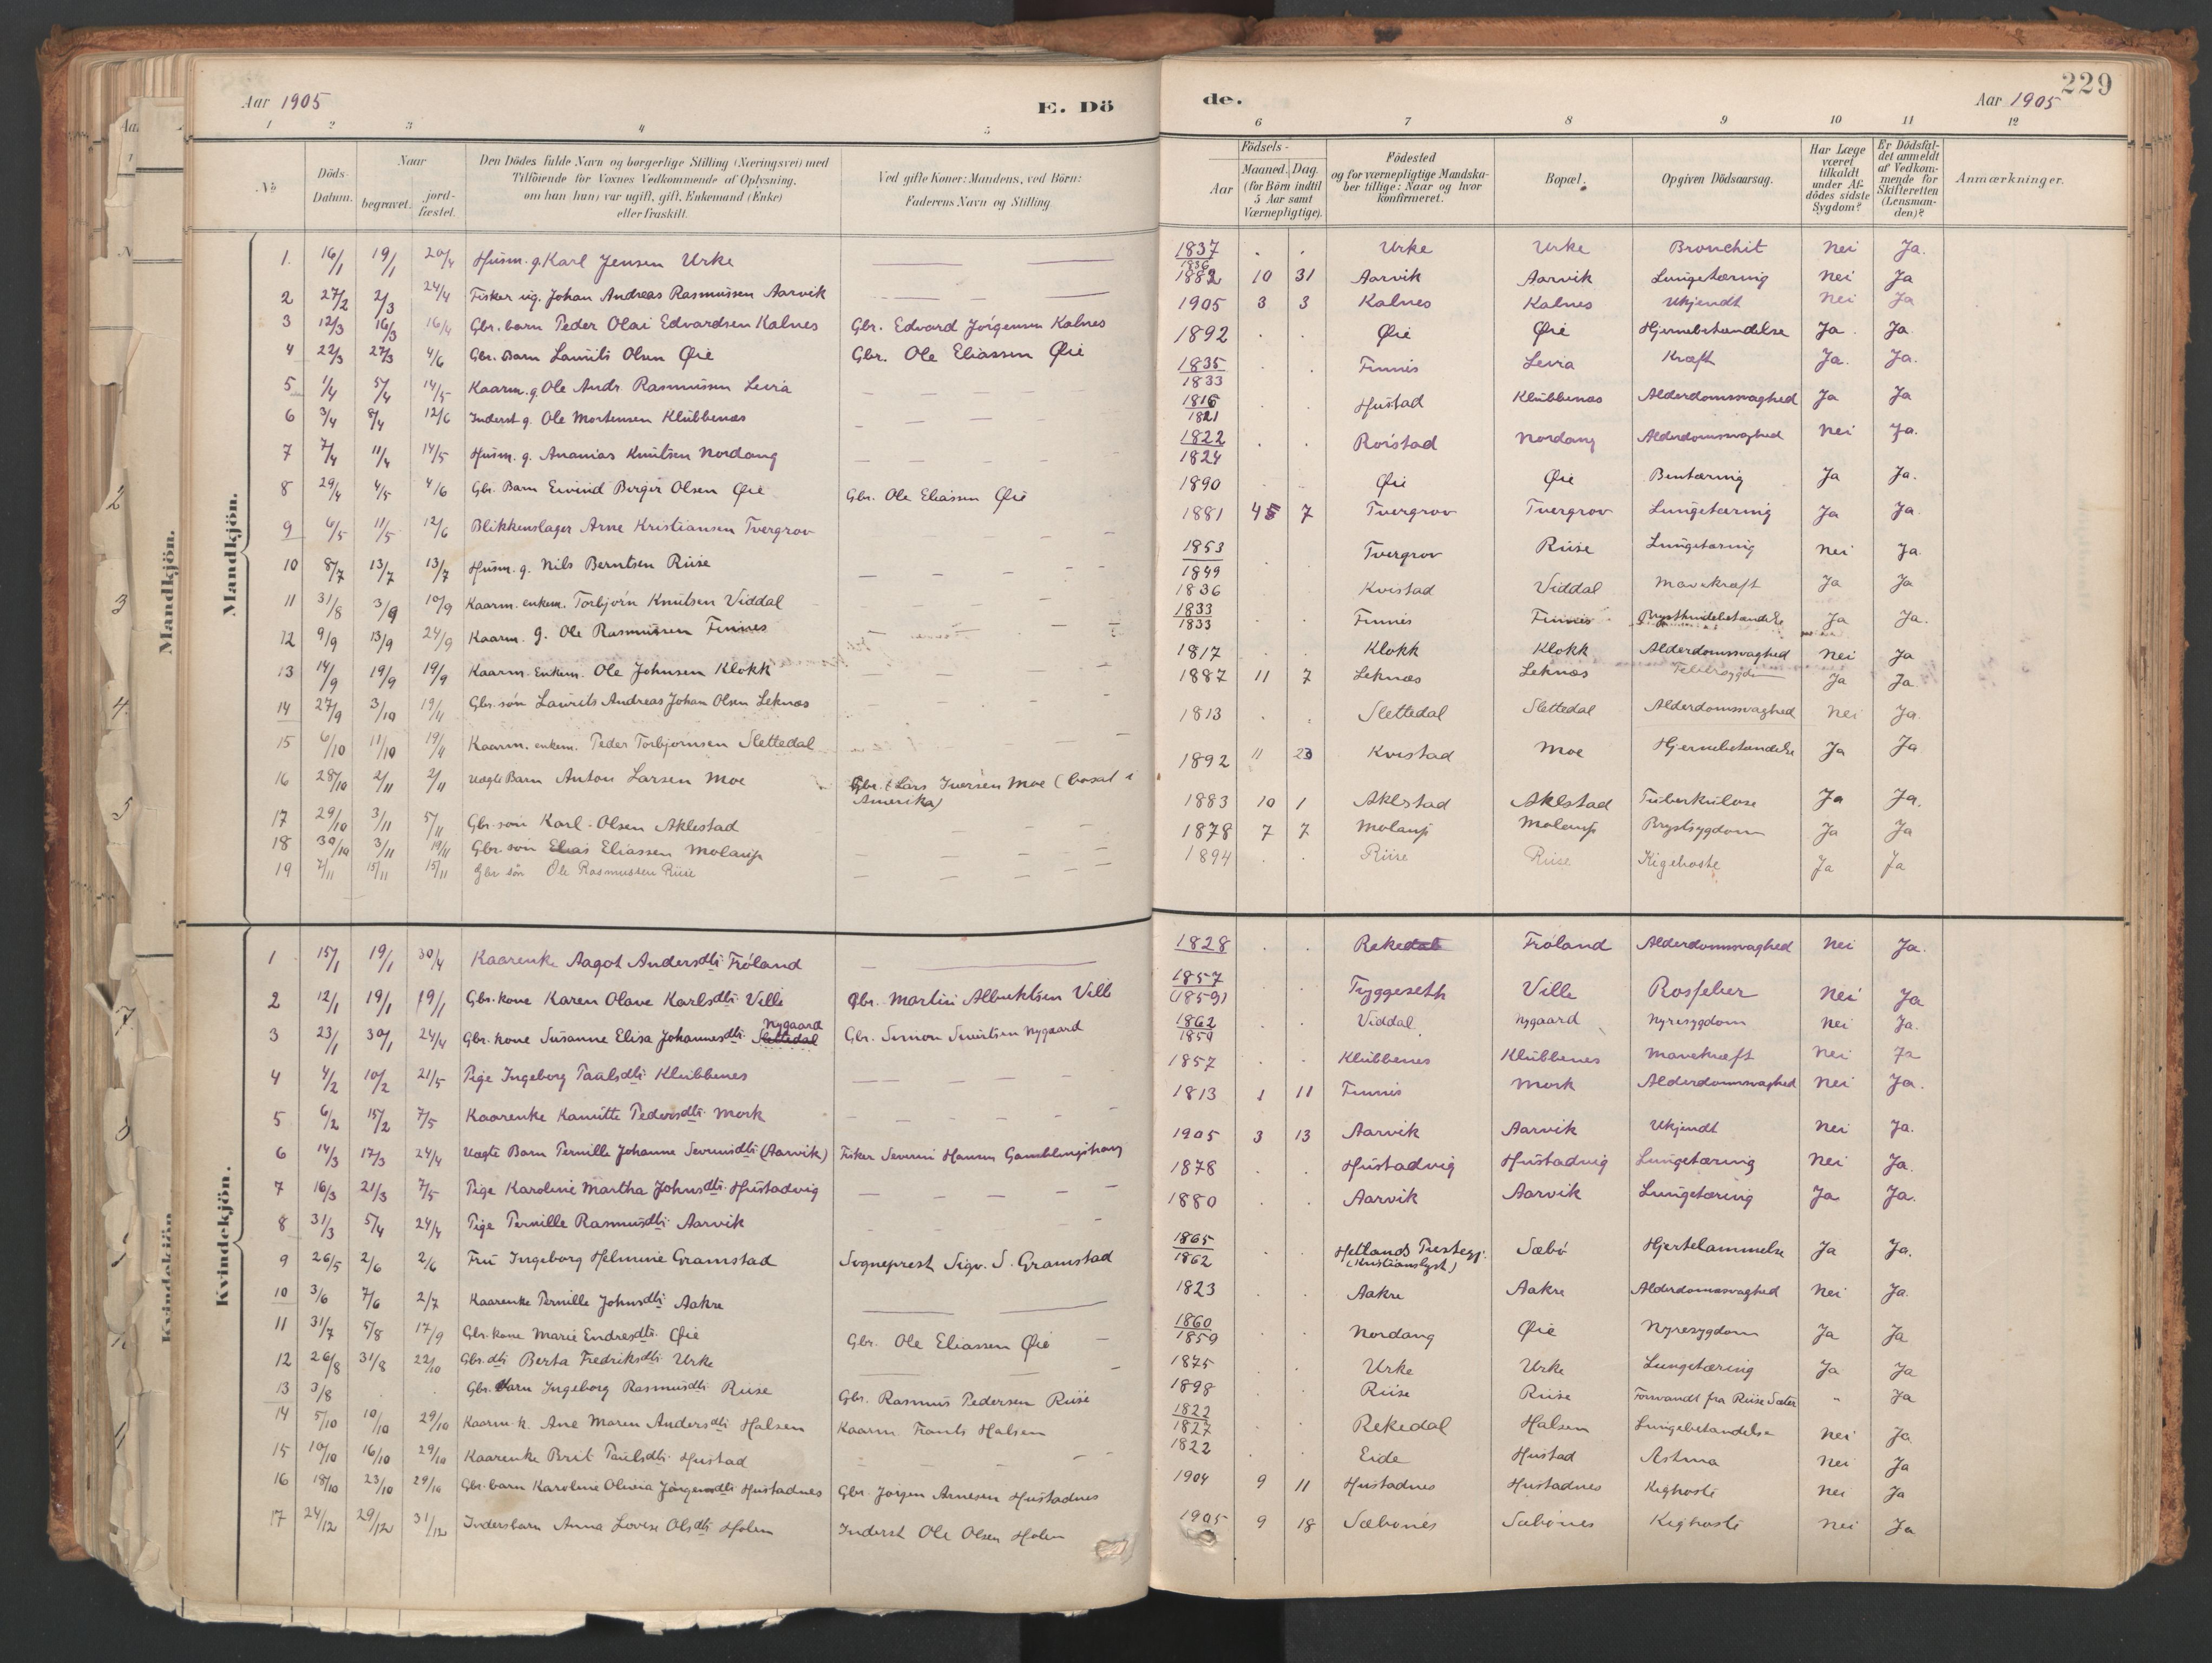 Aar 1905 E. Dö
de. Aar 1905 229
1 2 3 4 5 6 7 8 9 10 11 12
No
Döds-Datum.
Naar
begravet.
jord-fæstet.
Den Dödes fulde Navn og borgerlige Stilling (Næringsvei) med
Tilföiende for Voxnes Vedkommende af Oplysning,
om han (hun) var ugift, gift, Enkemand (Enke)
eller fraskilt.
Ved gifte Koner: Mandens, ved Börn:
Faderens Navn og Stilling
Födsels-
Aar
Maaned. Dag.
(for Börn indtil
5 Aar samt
Værnepligtige).
Födested
og for værnepligtige Mandska-
ber tillige: Naar og hvor
konfirmeret.
Bopæl.
Opgiven Dödsaarsag.
Har Læge
været
tilkaldt
under Af-
dödes sidste
Sygdom?
Er Dödsfal-
det anmeldt
af Vedkom-
mende for
Skifteretten
(Lensman-
den)?
Anmærkninger.
Mandkjön.
1. 16/1 19/1 20/4 Husm. g. Karl Jensen Urke 1837 1836 Urke Urke Bronchit Nei Ja.
2 27/2 2/3 24/4 Fisker ug. Johan Andreas Rasmussen Aarvik 1882 10 31 Aarvik Aarvik Lungetæring Nei Ja
3 12/3 16/3 16/4 Gbr. barn Peder Olai Edvardsen Kalnes Gbr. Edvard Jørgensen Kalnes 1905 3 3 Kalnes Kalnes Ukjendt Nei Ja
4 22/3 27/3 4/6 Gbr. Barn Laurits Olsen Øie Gbr. Ole Eliassen Øie 1892 Øie Øie Hjernebetændelse Ja Ja
5 1/4 5/4 14/5 Kaarm. g. Ole Andr. Rasmussen Leira 1835 1833 Finnes Leira Kræft Ja. Ja.
6 3/4 8/4 12/6 Inderst g. Ole Mortensen Klubbenæs 1816 1821 Hustad Klubbenæs Alderdomssvaghed Ja Ja
7 7/4 11/4 14/5 Husm. g. Ananias Knutsen Nordang 1822 1824 Rørstad Nordang Alderdomssvaghed Nei Ja.
8 29/4 4/5 4/6 Gbr. Barn Eivind Birger Olsen Øie Gbr. Ole Eliassen Øie 1890 Øie Øie Bentæring Ja Ja.
9 6/5 11/5 12/6 Blikkenslager Arne Kristiansen Tvergrov 1881 7 Tvergrov Tvergrov Lungetæring Ja Ja
10 8/7 13/7 13/7 Husm. g. Nils Berntsen Riise 1853 1849 Tvergrov Riise Lungetæring Nei Ja.
11 31/8 3/9 10/9 Kaarm. enkem. Torbjørn Knutsen Viddal 1836 Kvistad Viddal Mavekræft Ja Ja
12 9/9 13/9 24/9 Kaarm. g. Ole Rasmussen Finnes 1833 1833 Finnes Finnes Brysthindebetændelse Ja Ja.
13 14/9 19/9 19/9 Kaarm. Enkem. Ole Johnsen Klokk 1817 Klokk Klokk Alderdomssvaghed Nei Ja
14 27/9 3/10 19/11 Gbr. søn Laurits Andreas Johan Olsen Leknæs 1887 11 7 Leknæs Leknæs Ja Ja
15 6/10 11/10 19/11 Kaarm. enkem. Peder Torbjørnsen Slettedal 1813 Slettedal Slettedal Alderdomssvaghed Nei Ja.
16 28/10 2/11 2/11 Uægte Barn Anton Larsen Moe Gbr. Lars Iversen Moe (bosat i
Amerika) 1892 11 23 Kvistad Moe Hjernebetændelse Ja Ja
17 29/10 3/11 5/11 Gbr. søn Karl Olsen Aklestad 1883 10 1 Aklestad Aklestad Tuberkulose Ja Ja.
18 30/10 3/11 19/11 Gbr. søn Elias Eliassen Molaup 1878 7 7 Molaup Molaup Brystsygdom Ja Ja
19 7/11 15/11 15/11 Gbr søn Ole Rasmussen Riise 1894 Riise Riise Kigehoste Ja Ja
Kvindekjön.
1 15/1 19/1 30/4 Kaarenke Aagot Andersdtr Frøland 1828 Rekedal Frøland Alderdomssvaghed Nei Ja.
2 12/1 19/1 19/1 Gbr. kone Karen Olave Karlsdtr. Ville Gbr. Martin Albrektsen Ville 1857 (1859) Tryggeseth Ville Rosfeber Nei Ja
3 23/1 30/1 24/4 Gbr. kone Susanne Elisa Johannesdtr. Slettedal Nygaard Gbr. Simon Sivertsen Nygaard 1862 1859 Viddal Nygaard Nyresygdom Nei Ja.
4 4/2 10/2 21/5 Pige Ingeborg Paulsdtr Klubbenes 1857 Klubbenes Klubbenes Mavekræft Nei Ja
5 6/2 15/2 7/5 Kaarenke Kanutte Pedersdtr. Mork 1813 1 11 Finnes Mork Alderdomssvaghed Nei Ja.
6 14/3 17/3 24/4 Uægte Barn Pernille Johanne Severinsdtr (Aarvik) Fisker Severin Hansen 1905 3 13 Aarvik Aarvik Ukjendt Nei Ja.
7 16/3 21/3 7/5 Pige Karoline Martha Johnsdtr. Hustadvig 1878 Hustadvig Hustadvig Lungetæring Nei Ja.
8 31/3 5/4 24/4 Pige Pernille Rasmusdtr Aarvik 1880 Aarvik Aarvik Lungetæring Ja Ja.
9 26/5 2/6 2/6 Fru Ingeborg Helmine Gramstad Sogneprest Sigv. S. Gramstad 1865 1862 Hetlands Prestegj.
(Kristianslyst) Sæbø Hjertelammelse Ja Ja.
10 3/6 7/6 2/7 Kaarenke Pernille Johnsdtr. Aakre 1823 Aakre Aakre Alderdomssvaghed Nei Ja.
11 31/7 5/8 17/9 Gbr. kone Marie Endresdtr. Øie Gbr. Ole Eliassen Øie 1860 1859 Nordang Øie Nyresygdom Ja Ja
12 26/8 31/8 22/10 Gbr. dtr Berta Fredriksdtr. Urke 1875 Urke Urke Lungetæring Ja Ja
13 3/8 Gbr. Barn Ingeborg Rasmusdtr. Riise Gbr. Rasmus Pedersen Riise 1898 Riise Riise Forsvandt fra Riise Sæter " Ja
14 5/10 10/10 29/10 Kaarm. k. Ane Maren Andersdtr Halsen Kaarm. Frants Halsen 1822 1827 Rekedal Halsen Lungebetændelse Nei Ja
15 10/10 16/10 29/10 Kaarenke Brit Paulsdtr. Hustad 1822 Eide Hustad Astma Nei Ja
16 18/10 23/10 29/10 Gbr. barn Karoline Olivia Jørgensdtr Hustadnes Gbr. Jørgen Arnesen Hustadnes 1904 9 11 Hustadnes Hustadnes Kighoste Nei Ja
17 24/12 29/12 31/12 Indersbarn Anna Lovise Olsdtr. Holen Inderst Ole Olsen Holen 1905 9 18 Sæbønes Sæbønes Kighoste Nei Ja
Mandkjön.
2
3
4
5
7
8
Kvindekjön